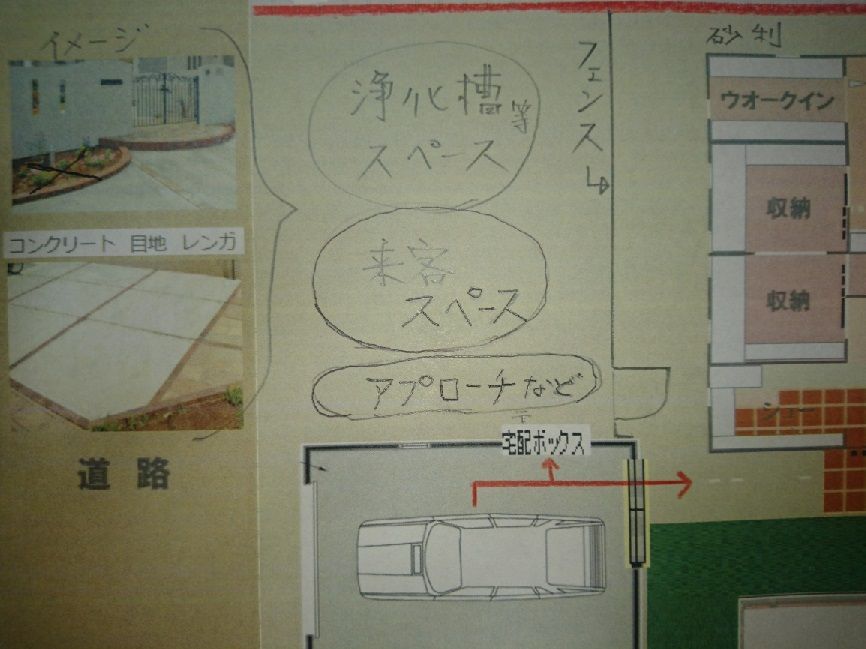 イメージ
コンクリート 目地 レンガ
道路
浄化槽等
スペース
来客
スペース
アプローチなど
宅配ボックス
フェンス
砂利
ウオークイン
収納
収納
シュー